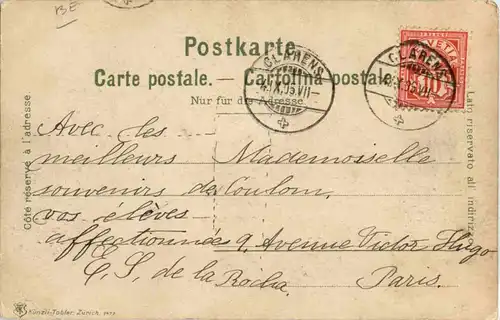 BE
Postkarte.
Carte postale. — Cartolina postale
Nur für die Adresse.
CLARENS
CLARENS
HELVETIA
10
Côté réservé à l'adresse.
Lato riservato all' indirizzo.
Avec les
meilleurs
souvenirs de
vos élèves
affectionnée
E. S. de la Rocha.
Mademoiselle
Coulom.
9, Avenue Victor Hugo
Paris.
Künzli-Tobler, Zürich.